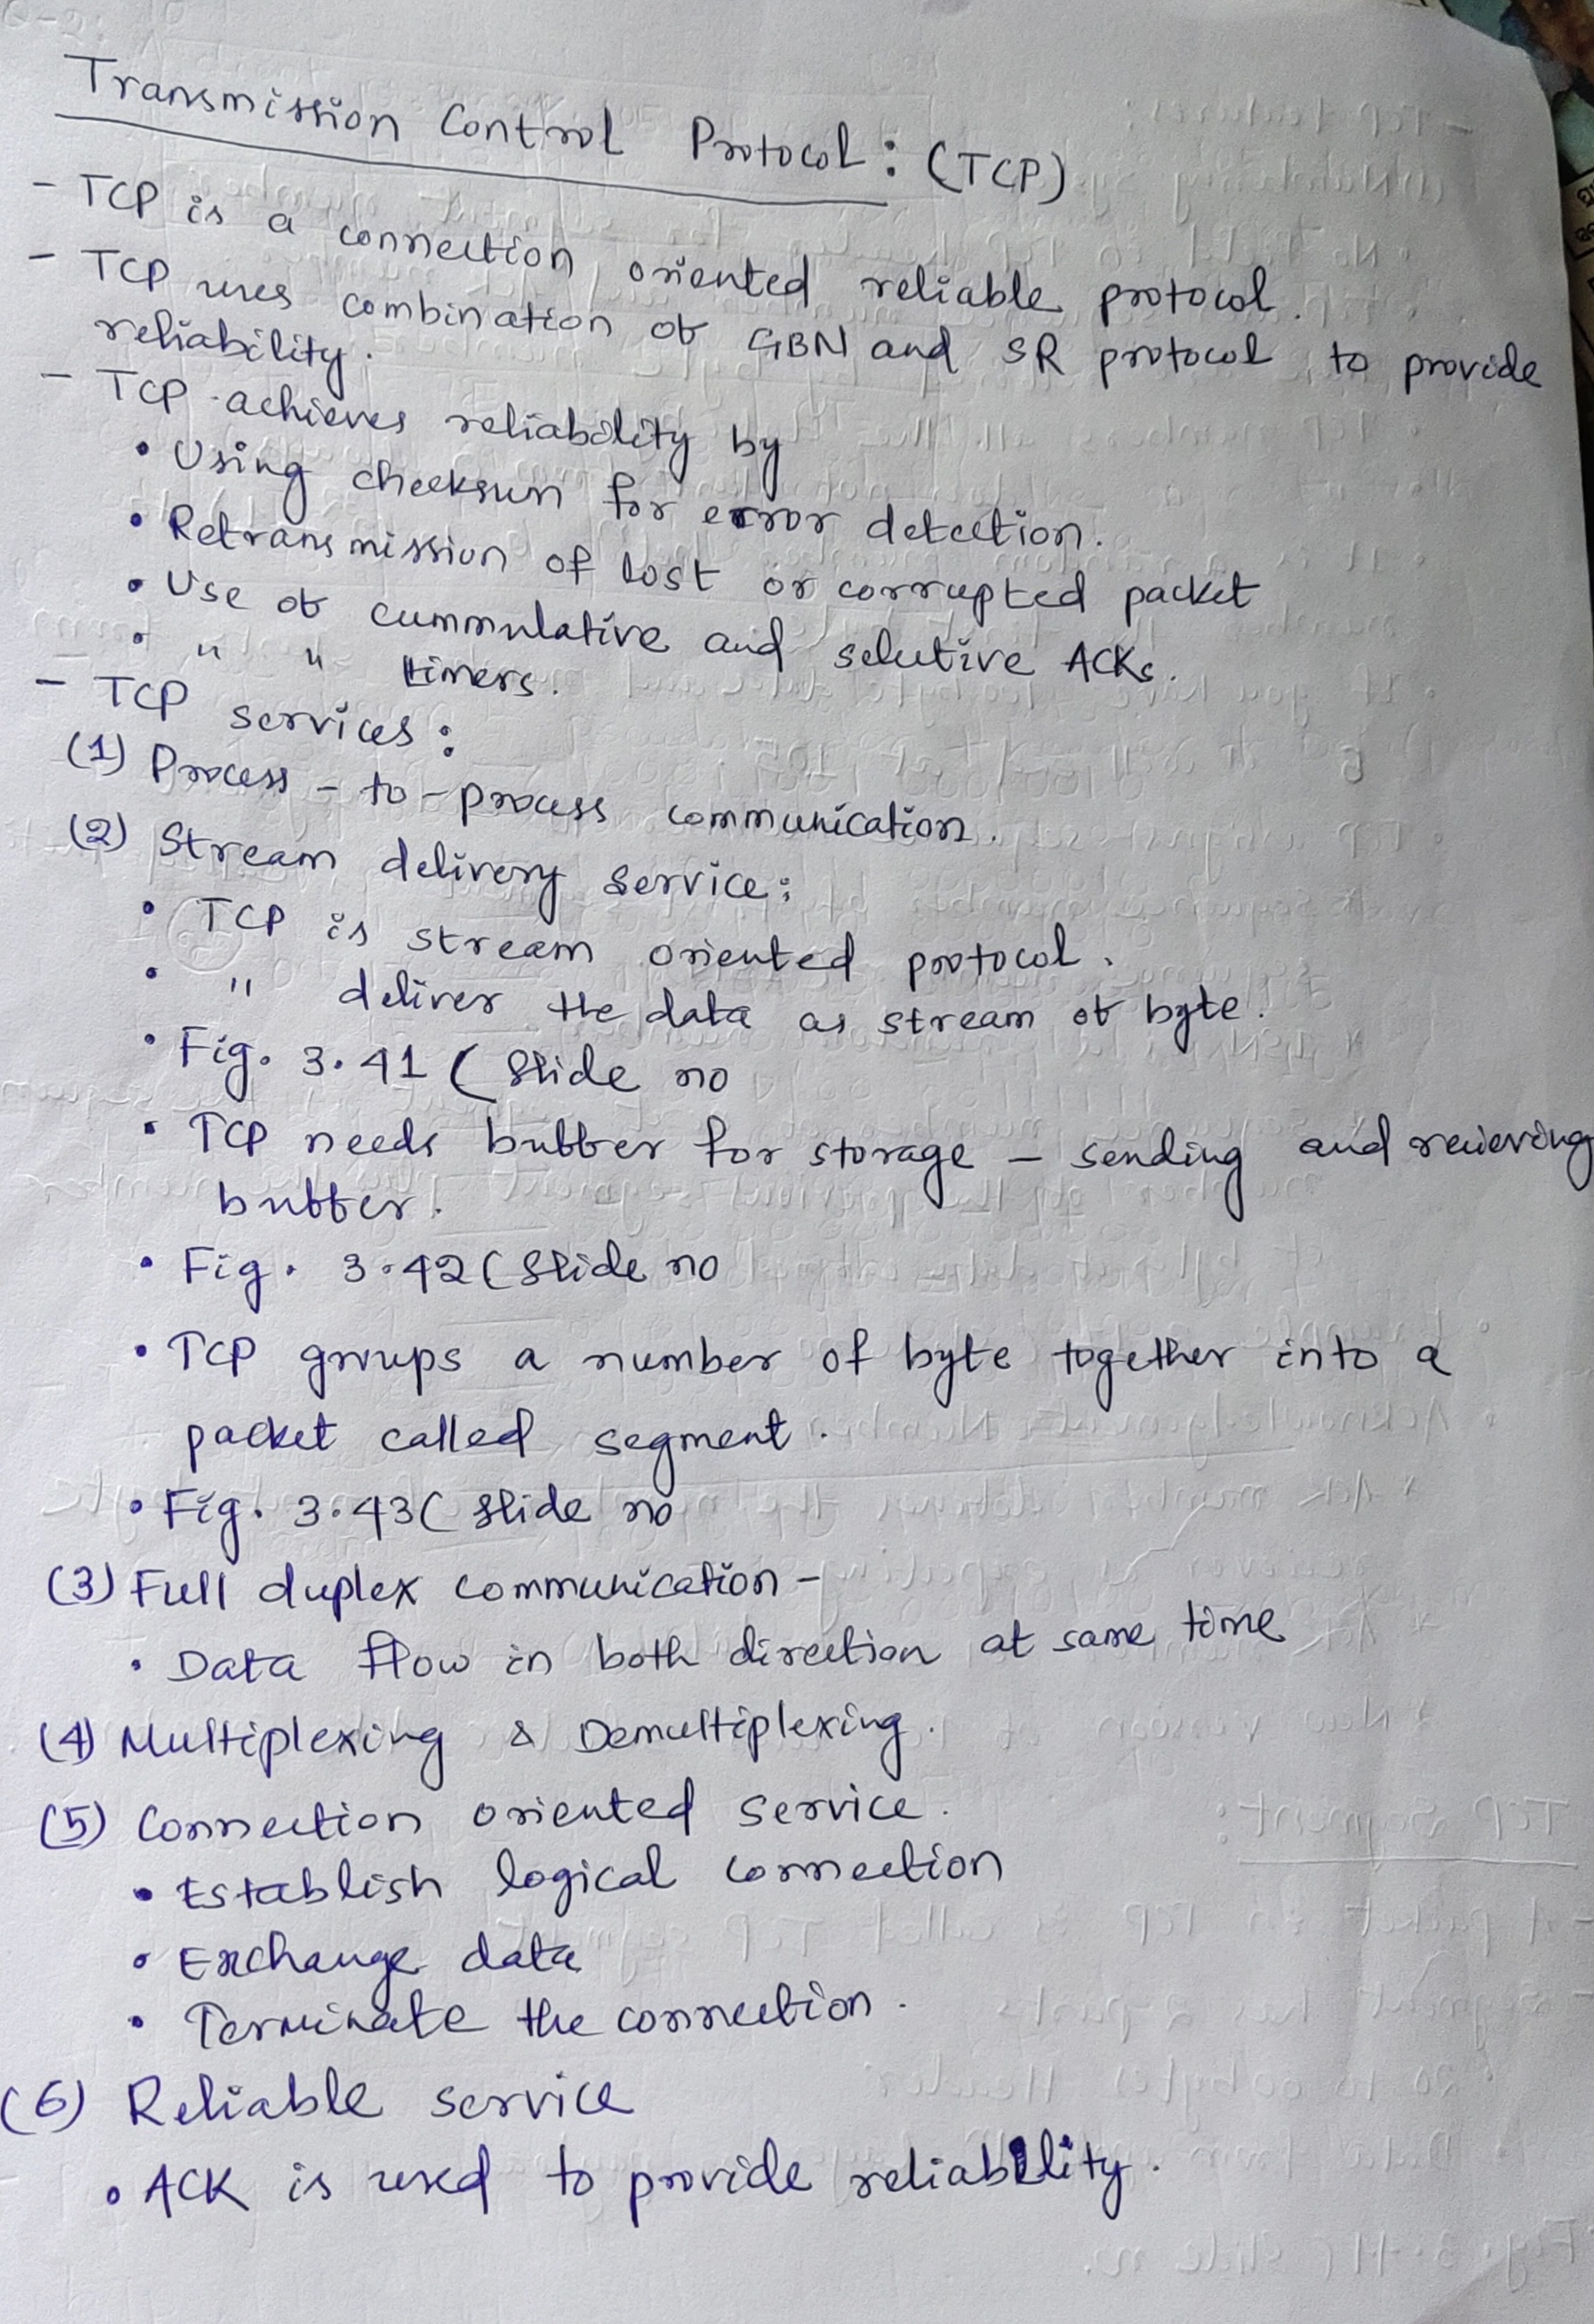 Transmission Control Protocol : (TCP)
- TCP is a connection oriented reliable protocol.
- TCP uses combination of GBN and SR protocol to provide
reliability.
- TCP achieves reliability by
• Using checksum for error detection.
• Retransmission of lost or corrupted packet
• Use of cummulative and selective ACKs.
• " " timers.
- TCP services :
(1) Process - to - process communication.
(2) Stream delivery service :
• TCP is stream oriented protocol.
• " deliver the data as stream of byte.
• Fig. 3.41 ( Slide no
• TCP needs buffer for storage - sending and recieving
buffer.
• Fig. 3.42 ( Slide no
• TCP groups a number of byte together into a
packet called segment.
• Fig. 3.43 ( Slide no
(3) Full duplex communication -
• Data flow in both direction at same time
(4) Multiplexing & Demultiplexing.
(5) Connection oriented service.
• Establish logical connection
• Exchange data
• Terminate the connection.
(6) Reliable service
• ACK is used to provide reliability.